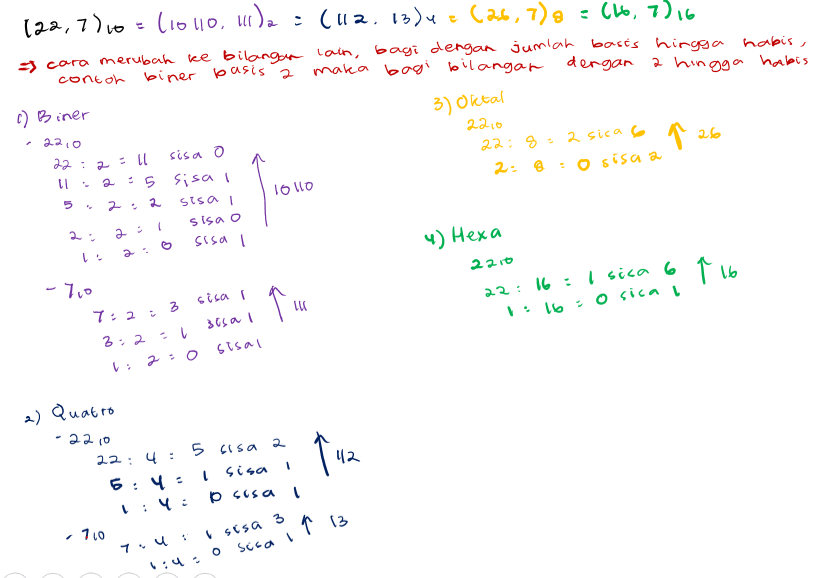 (22,7)10 = (10110, 111)2 = (112. 13)4 = (26,7)8 = (16, 7)16
=> cara merubah ke bilangan lain, bagi dengan jumlah basis hingga habis,
contoh biner basis 2 maka bagi bilangan dengan 2 hingga habis
1) Biner
- 2210
22 : 2 = 11 sisa 0
11 : 2 = 5 sisa 1
5 : 2 = 2 sisa 1
2 : 2 = 1 sisa 0
1 : 2 = 0 sisa 1
↑ 10110
- 710
7 : 2 = 3 sisa 1
3 : 2 = 1 sisa 1
1 : 2 = 0 sisa 1
↑ 111
2) Quatro
- 2210
22 : 4 = 5 sisa 2
5 : 4 = 1 sisa 1
1 : 4 = 0 sisa 1
↑ 112
- 710
7 : 4 = 1 sisa 3
1 : 4 = 0 sisa 1
↑ 13
3) Oktal
2210
22 : 8 = 2 sisa 6
2 : 8 = 0 sisa 2
↑ 26
4) Hexa
2210
22 : 16 = 1 sisa 6
1 : 16 = 0 sisa 1
↑ 16